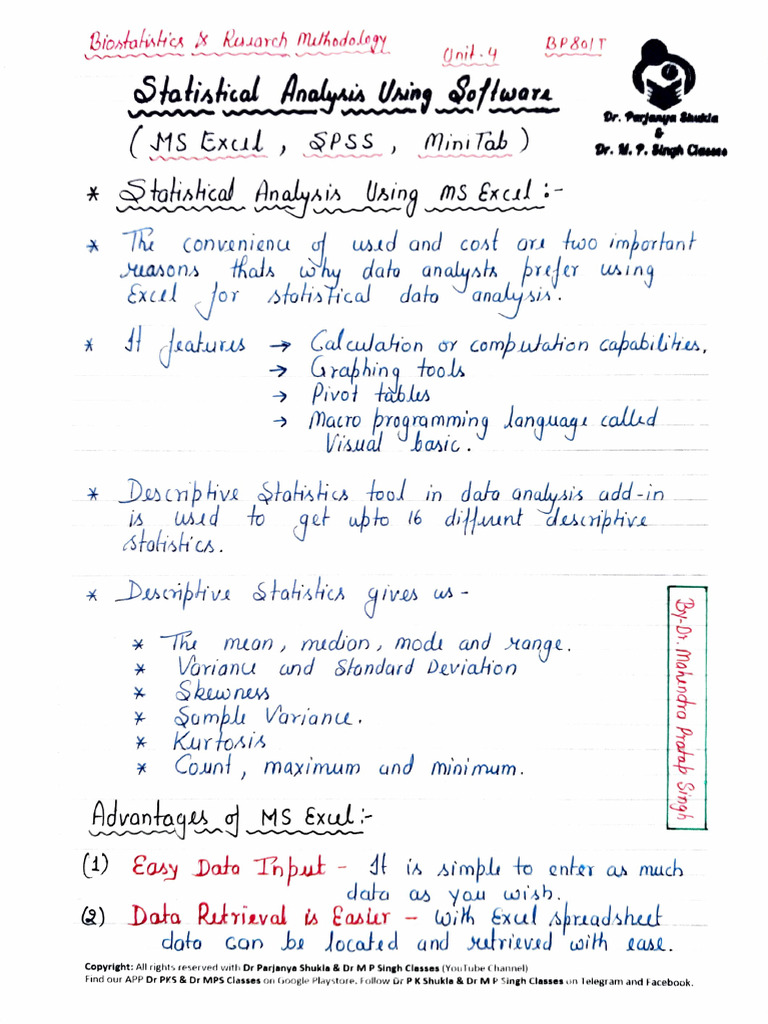 Biostatistics & Research Methodology
Unit-4
BP801T
Statistical Analysis Using Software
Dr. Parjanya Shukla
&
Dr. M. P. Singh Classes
(MS Excel, SPSS, MiniTab)
* Statistical Analysis Using MS Excel:-
* The convenience of used and cost are two important
reasons thats why data analysts prefer using
Excel for statistical data analysis.
* It features → Calculation or computation capabilities.
→ Graphing tools
→ Pivot tables
→ Macro programming language called
Visual basic.
* Descriptive Statistics tool in data analysis add-in
is used to get upto 16 different descriptive
statistics.
* Descriptive Statistics gives us -
* The mean, median, mode and range.
* Variance and Standard Deviation
* Skewness
* Sample Variance.
* Kurtosis
* Count, maximum and minimum.
By-Dr. Mahendra Pratap Singh
Advantages of MS Excel:-
(1) Easy Data Input - It is simple to enter as much
data as you wish.
(2) Data Retrieval is Easier - With Excel spreadsheet
data can be located and retrieved with ease.
Copyright: All rights reserved with Dr Parjanya Shukla & Dr M P Singh Classes (YouTube Channel)
Find our APP Dr PKS & Dr MPS Classes on Google Playstore. Follow Dr P K Shukla & Dr M P Singh Classes on Telegram and Facebook.